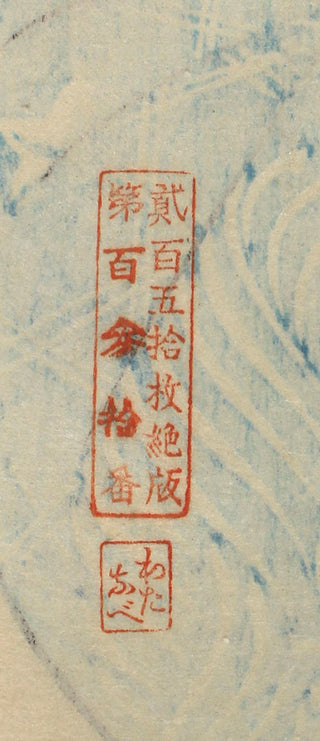 貳百五拾枚絶版
第百参拾番
わた
なべ